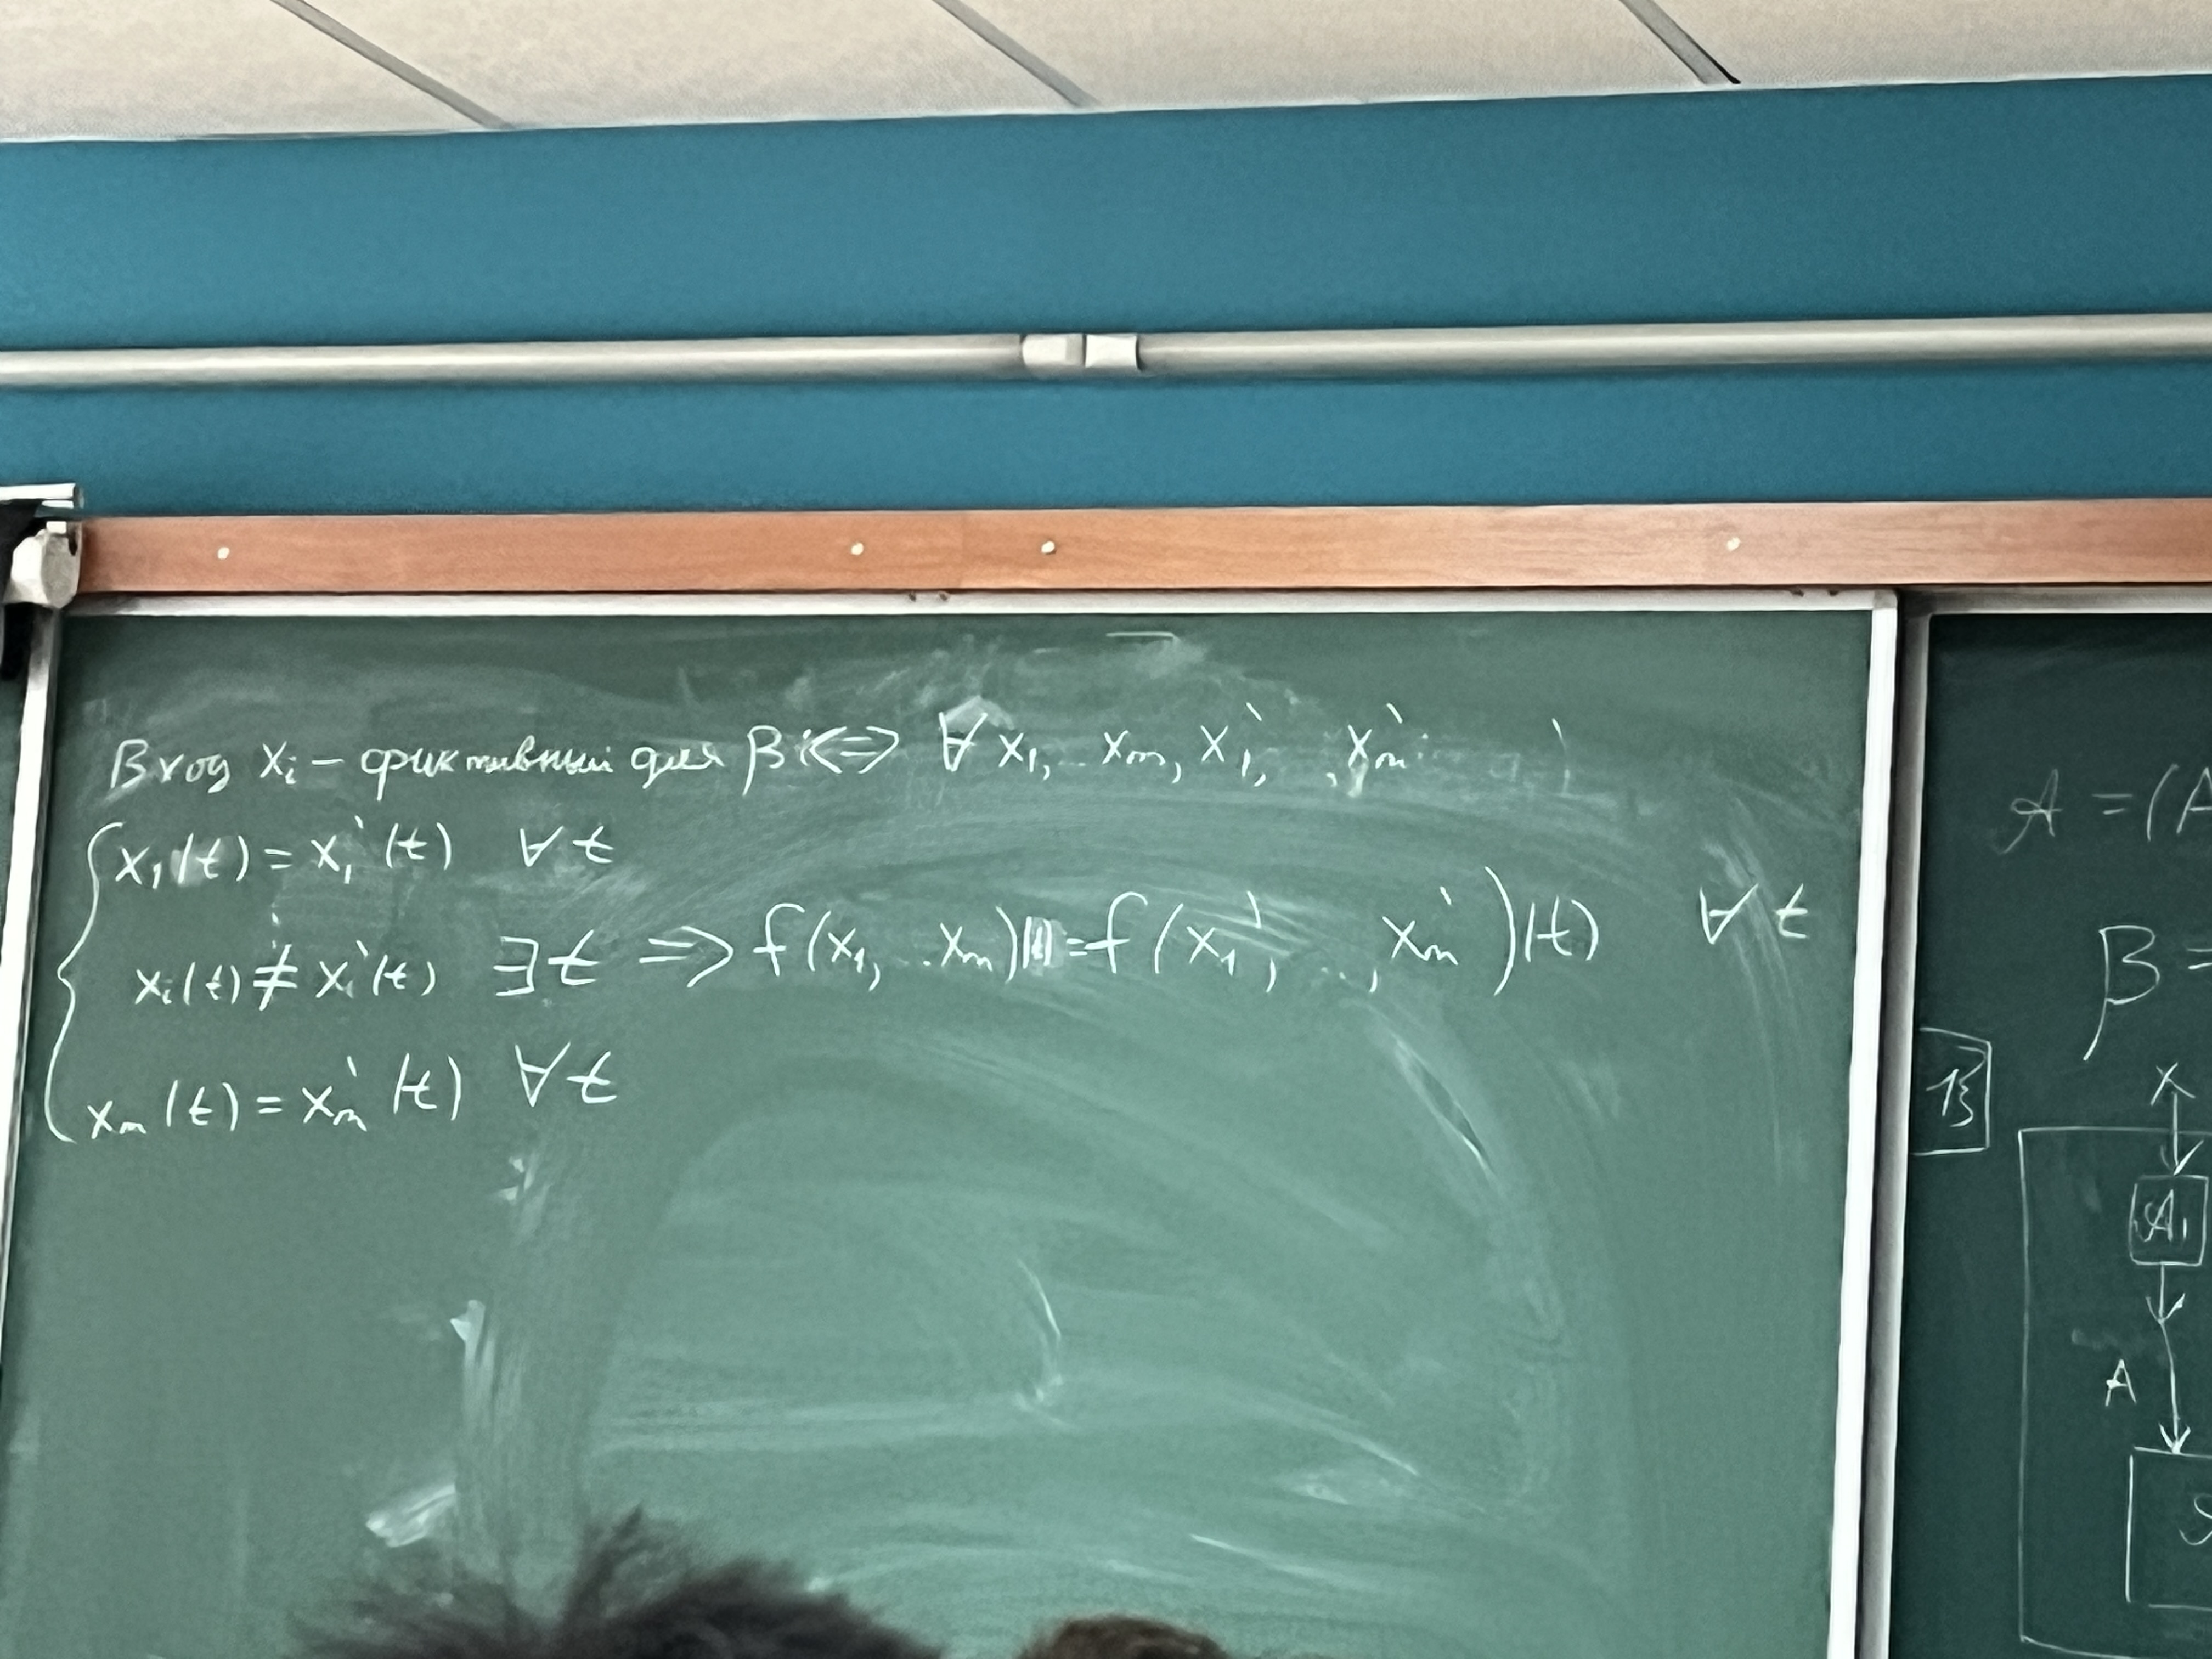 Вход xᵢ – фиктивный для β ⇔ ∀ x₁, .. xₘ, x₁', , xₘ'
{ x₁(t) = x₁'(t) ∀ t
xᵢ(t) ≠ xᵢ'(t) ∃ t ⇒ f(x₁, .. xₘ)(t) = f(x₁', .., xₘ')(t) ∀ t
xₘ(t) = xₘ'(t) ∀ t
𝒜 = (A
β =
B
x
𝒜₁
A